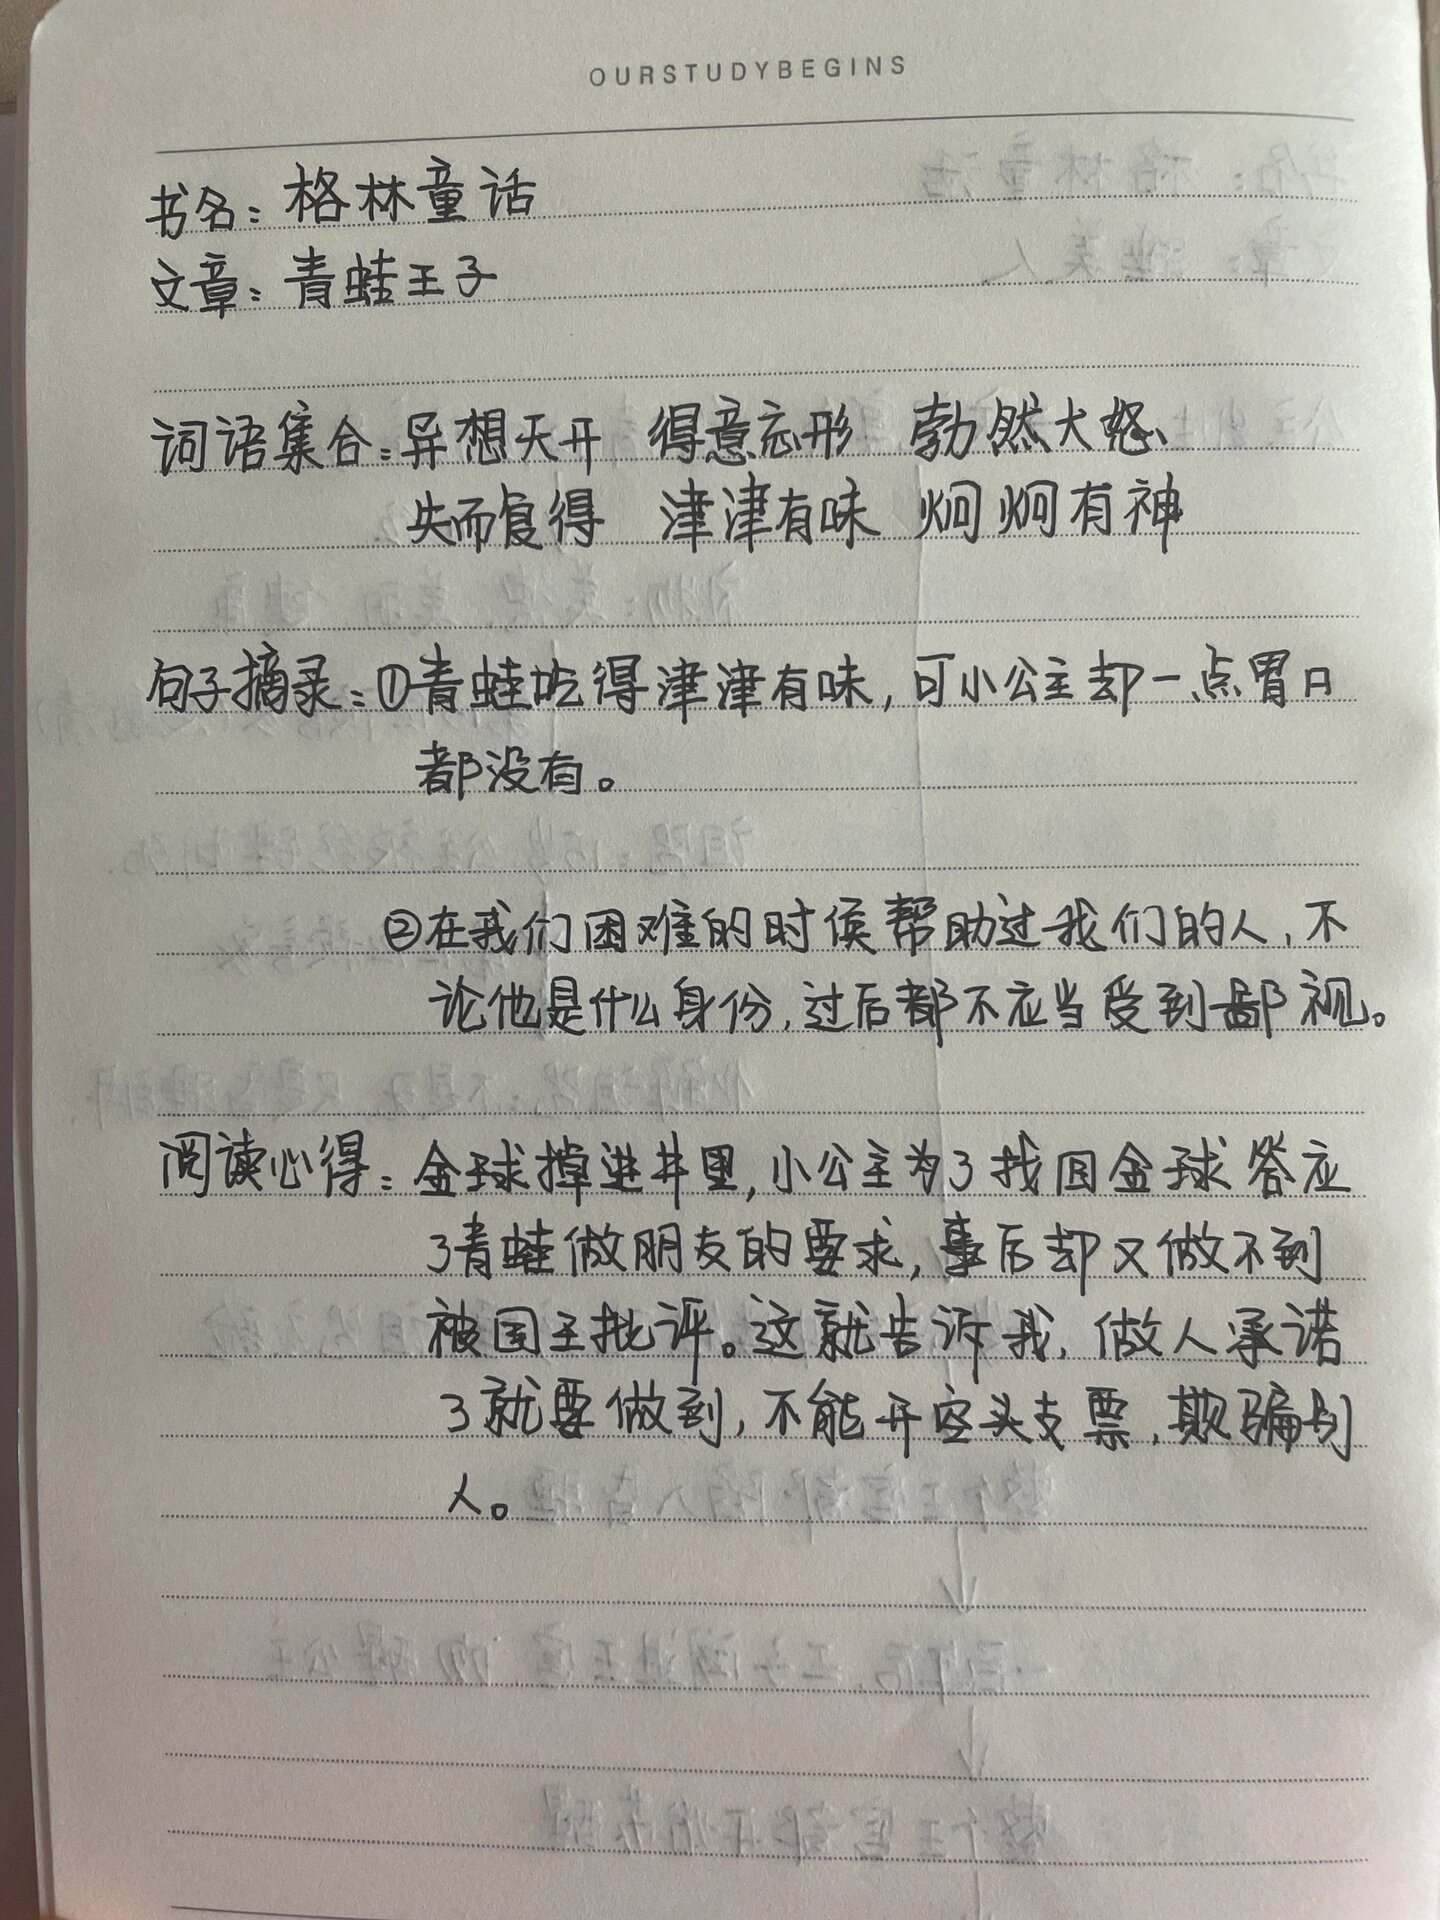 OURSTUDYBEGINS
书名：格林童话
文章：青蛙王子
词语集合：异想天开 得意忘形 勃然大怒
失而复得 津津有味 炯炯有神
句子摘录：①青蛙吃得津津有味，可小公主却一点胃口
都没有。
②在我们困难的时候帮助过我们的人，不
论他是什么身份，过后都不应当受到鄙视。
阅读心得：金球掉进井里，小公主为了找回金球答应
了青蛙做朋友的要求，事后却又做不到
被国王批评。这就告诉我，做人承诺
了就要做到，不能开空头支票，欺骗别
人。